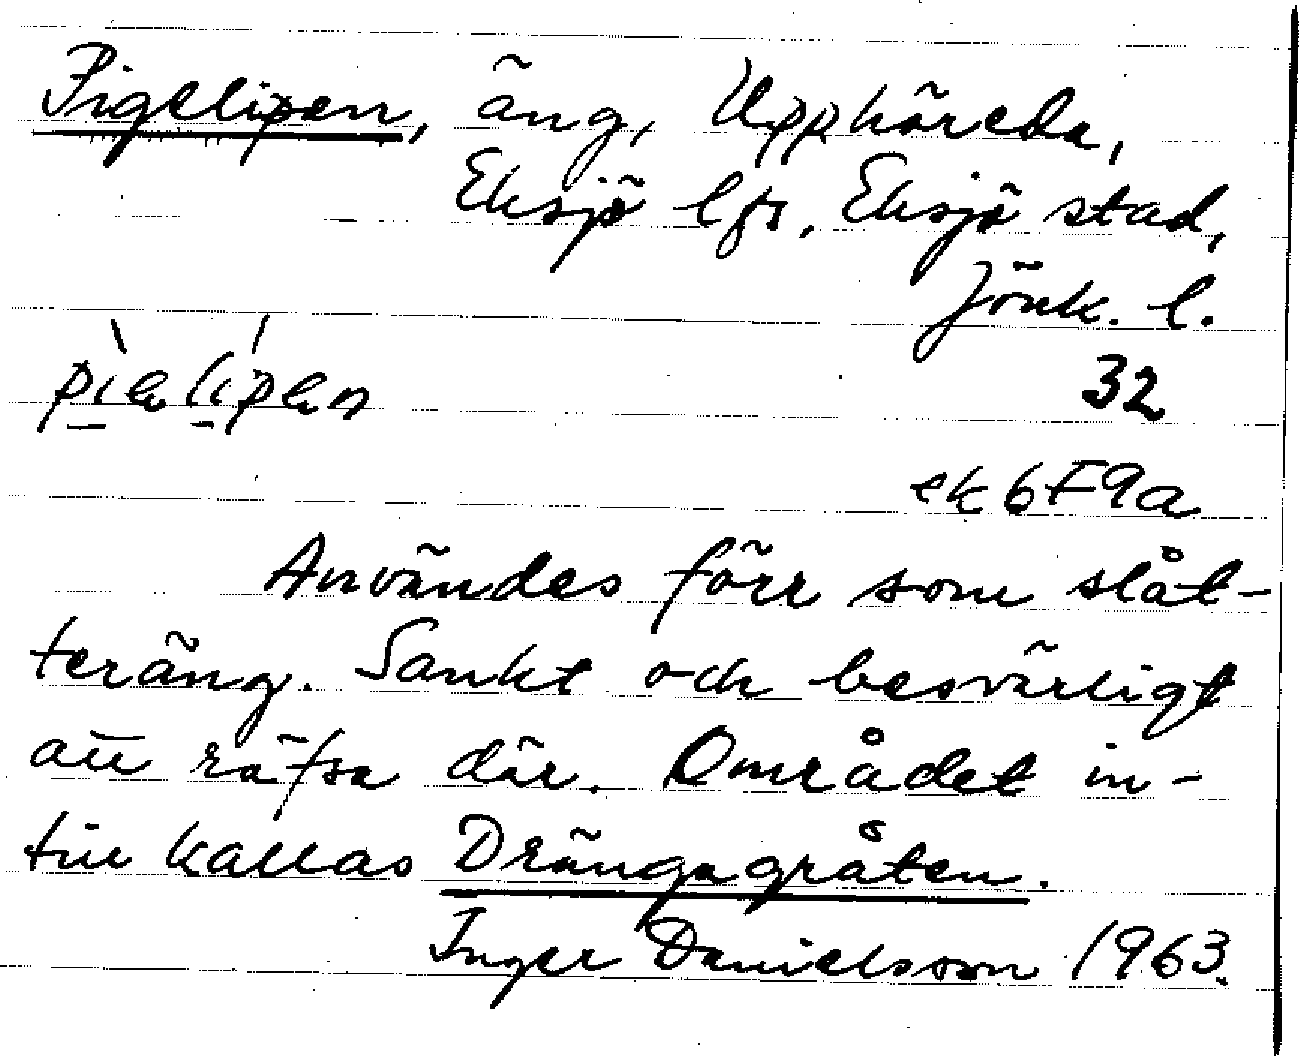 Pigelipen, äng, Upphäreda,
Eksjö lfs, Eksjö stad,
Jönk. l.
32
ek 6F9a
Användes förr som slåt-
teräng. Sankt och besvärligt
att räfsa där. Området in-
till kallas Drängagråten.
Inger Danielsson 1963.